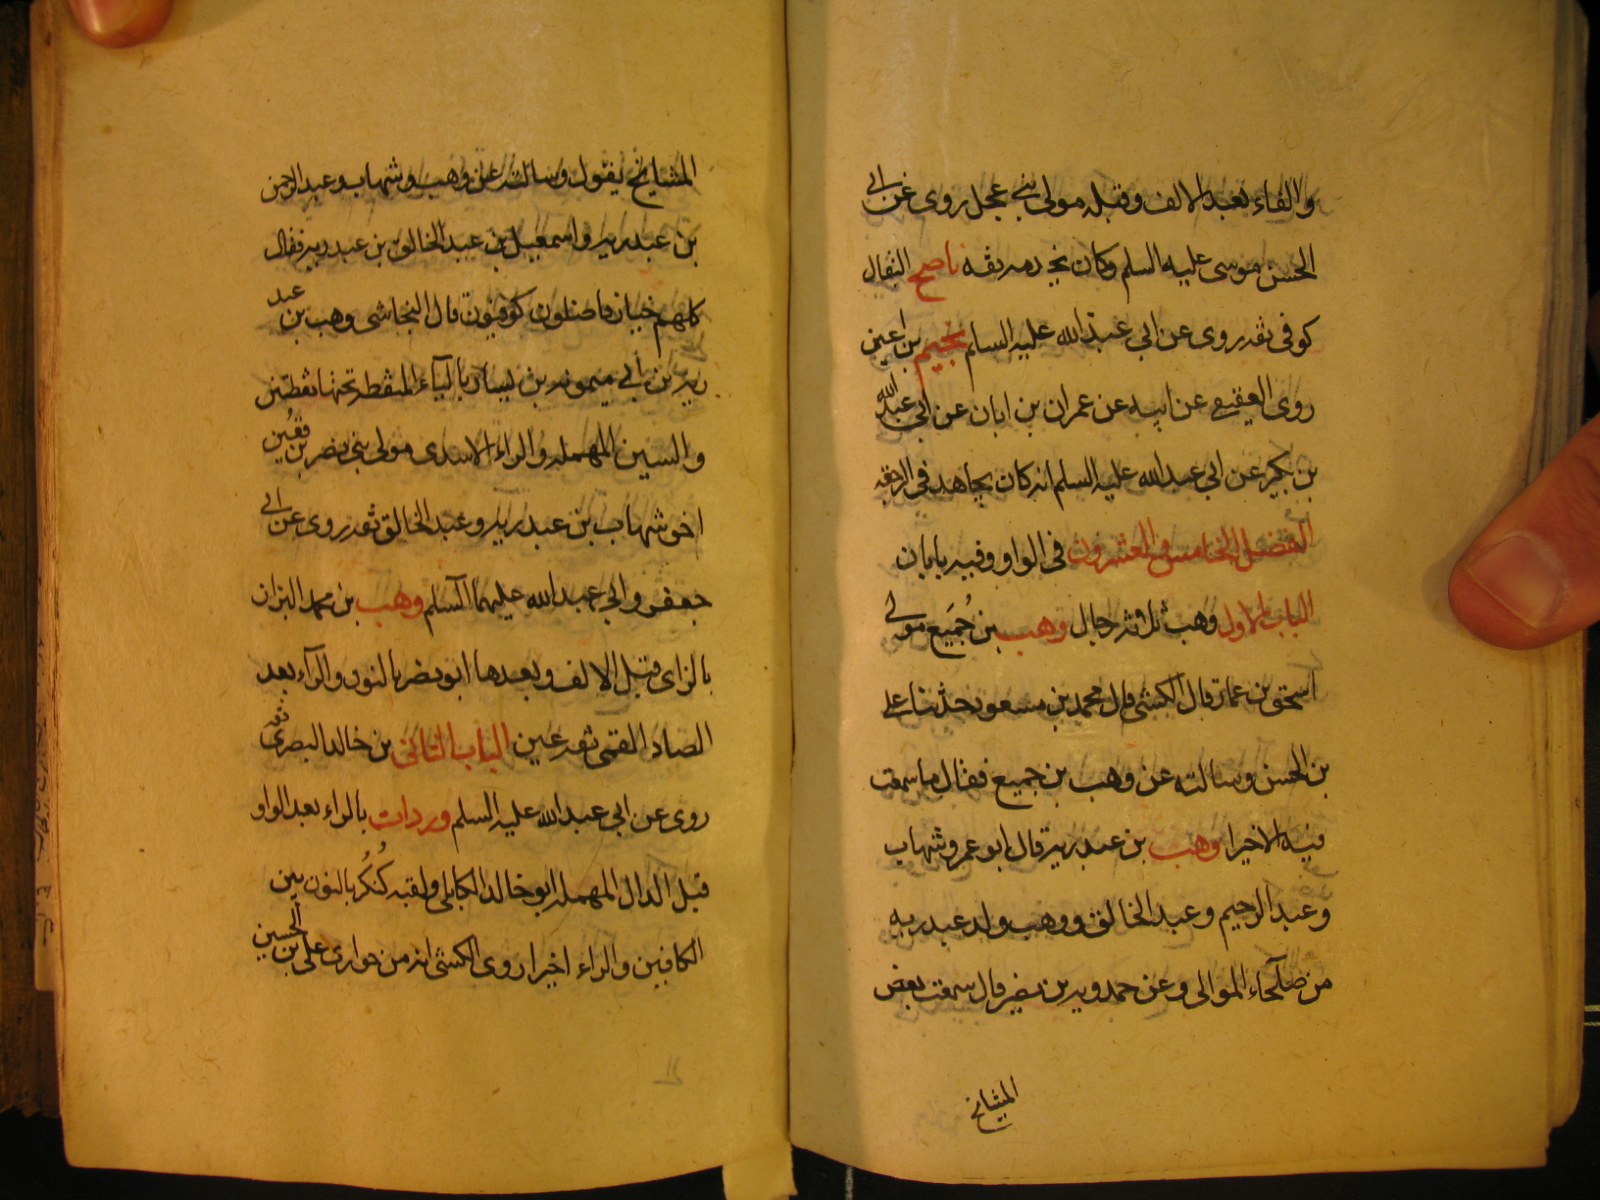 والفاء بعد الالف وقبله مولى بنى عجل روى عن ابى
الحسن موسى عليه السلم وكان يخدمه ثقه ناصح البقال
كوفى ثقه روى عن ابى عبد الله عليه السلم نجيم بن اعين
روى العقيقى عن ابيه عن عمران بن ابان عن ابى عبد الله
بن بكير عن ابى عبد الله عليه السلم انه كان يجاهد فى الرجعه
الفصل الخامس والعشرون فى الواو وفيه بابان
الباب الاول وهب ثلاثه رجال وهب بن جُمَيع مولى
اسحق بن عمار قال الكشى قال محمد بن مسعود حدثنا على
بن الحسن وسالته عن وهب بن جميع فقال ما سمعت
فيه الا خيرا وهب بن عبد ربه قال ابو عمرو شهاب
وعبد الرحيم وعبد الخالق ووهب ولد عبد ربه
من صلحاء الموالى وعن حمدويه بن نصير قال سمعت بعض
المشايخ
المشايخ يقول وسالته عن وهب وشهاب وعبد الرحمن
بن عبد ربه واسمعيل بن عبد الخالق بن عبد ربه فقال
كلهم خيار فاضلون كوفيون قال النجاشى وهب بن عبد
ربه بن ابى ميمونه بن يسار بالياء المنقطه تحتها نقطتين
والسين المهمله والراء الاسدى مولى بنى نصر بن قعُين
اخو شهاب بن عبد ربه وعبد الخالق ثقه روى عن ابى
جعفر وابى عبد الله عليهما السلم وهب بن محمد البزاز
بالزاى قبل الالف وبعدها ابو نصر بالنون والراء بعد
الصاد القمى ثقه عين الباب الثانى بن خالد البصرى ثقه
روى عن ابى عبد الله عليه السلم وردان بالراء بعد الواو
قبل الدال المهمله ابو خالد الكابلى ولقبه كُنكُر بالنون بين
الكافين والراء اخيرا روى الكشى انه من حوارى على بن الحسين